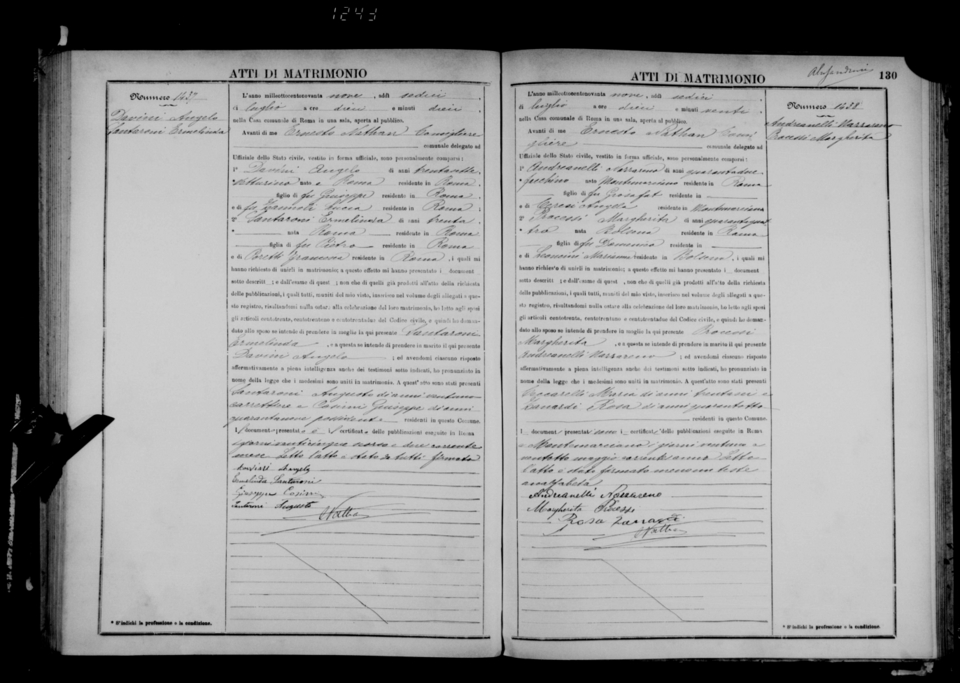 1243
ATTI DI MATRIMONIO
Numero 1437
Davieri Angelo
Santaroni Ermelinda
L'anno milleottocentonovanta nove, addì sedici
di luglio a ore dieci e minuti dieci
nella Casa comunale di Roma in una sala, aperta al pubblico.
Avanti di me Ernesto Nathan Consigliere
comunale delegato ad
Uffiziale dello Stato civile, vestito in forma ufficiale, sono personalmente comparsi:
1° Angelo di anni trentasette
nato a Roma residente in Roma
figlio di fu Giuseppe residente in Roma
e di fu residente in Roma;
2° Santaroni Ermelinda di anni trenta
nata Roma residente in Roma
figlia di fu Pietro residente in Roma
e di residente in Roma, i quali mi
hanno richiesto di unirli in matrimonio; a questo effetto mi hanno presentato i document
sotto descritti; e dall'esame di quest, non che di quelli già prodotti all'atto della richiesta
delle pubblicazioni, i quali tutti, muniti del mio visto, inserisco nel volume degli allegati a que-
sto registro, risultandomi nulla ostare alla celebrazione del loro matrimonio, ho letto agli sposi
gli articoli centotrenta, centotrentuno e centotrentadue del Codice civile, e quindi ho doman-
dato allo sposo se intenda di prendere in moglie la qui presente Santaroni
Ermelinda, e a questa se intenda di prendere in marito il qui presente
Angelo; ed avendomi ciascuno risposto
affermativamente a piena intelligenza anche dei testimoni sotto indicati, ho pronunziato in
nome della legge che i medesimi sono uniti in matrimonio. A quest'atto sono stati presenti
Santaroni Augusto di anni ventuno
carrettiere e Giuseppe di anni
quarantanove possidente residenti in questo Comune.
I document presentati è il certificato delle pubblicazioni eseguite in Roma
i giorni venticinque scorso e due corrente
mese. Letto l'atto è stato da tutti firmato
Angelo
Ermelinda Santaroni
Giuseppe
Santaroni Augusto
ENathan
* S'indichi la professione o la condizione.
ATTI DI MATRIMONIO
130
L'anno milleottocentonovanta nove, addì sedici
di luglio a ore dieci e minuti venti
nella Casa comunale di Roma in una sala, aperta al pubblico.
Avanti di me Ernesto Nathan Consi
gliere comunale delegato ad
Uffiziale dello Stato civile, vestito in forma ufficiale, sono personalmente comparsi:
1° Andreanelli Nazzareno di anni quarantadue
facchino nato Montemarciano residente in Roma
figlio di fu Giosafat residente in
e di residente in Montemarciano
2° Margherita di anni quarantaquat
tro nata Bolsena residente in Roma
figlia di fu Domenico residente in
e di Marianna residente in Bolsena, i quali mi
hanno richiesto di unirli in matrimonio; a questo effetto mi hanno presentato i document
sotto descritti; e dall'esame di quest, non che di quelli già prodotti all'atto della richiesta
delle pubblicazioni, i quali tutti, muniti del mio visto, inserisco nel volume degli allegati a que-
sto registro, risultandomi nulla ostare alla celebrazione del loro matrimonio, ho letto agli sposi
gli articoli centotrenta, centotrentuno e centotrentadue del Codice civile, e quindi ho doman-
dato allo sposo se intenda di prendere in moglie la qui presente
Margherita, e a questa se intenda di prendere in marito il qui presente
Andreanelli Nazzareno; ed avendomi ciascuno risposto
affermativamente a piena intelligenza anche dei testimoni sotto indicati, ho pronunziato in
nome della legge che i medesimi sono uniti in matrimonio. A quest'atto sono stati presenti
Maria di anni trentuni e
Rosa di anni quarantotto
residenti in questo Comune.
I document presentati sono i certificati delle pubblicazioni eseguite in Roma
e Montemarciano i giorni ventuno e
ventotto maggio corrente anno. Letto
l'atto è stato firmato meno un teste
analfabeta
Andreanelli Nazzareno
Margherita
Rosa
ENathan
Numero 1438
Andreanelli Nazzareno
Margherita
* S'indichi la professione o la condizione.